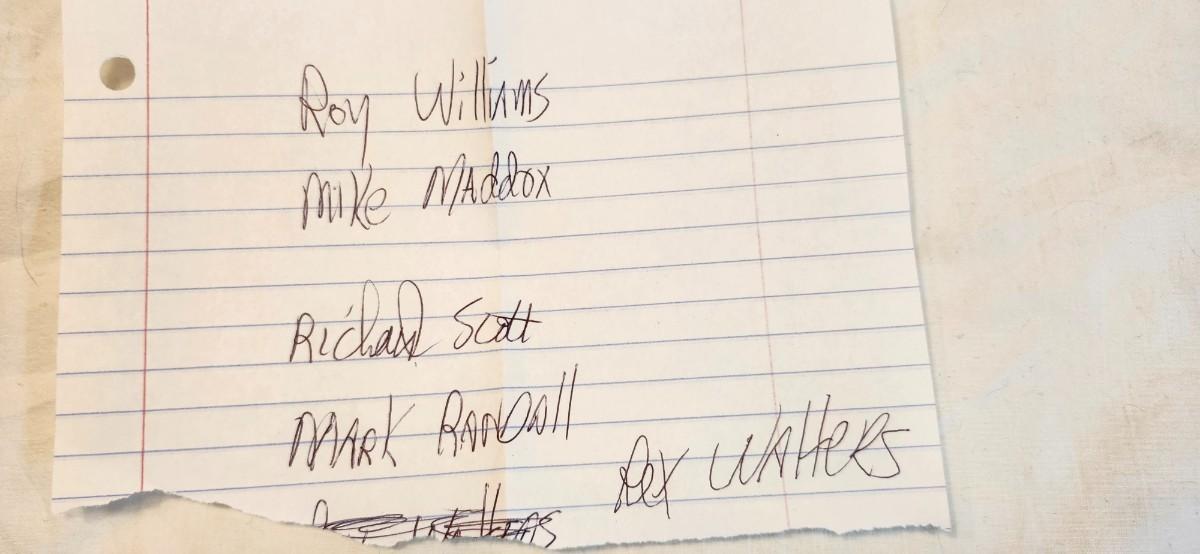 Roy Williams
Mike Maddox
Richard Scott
Mark Randall
Rex Walters